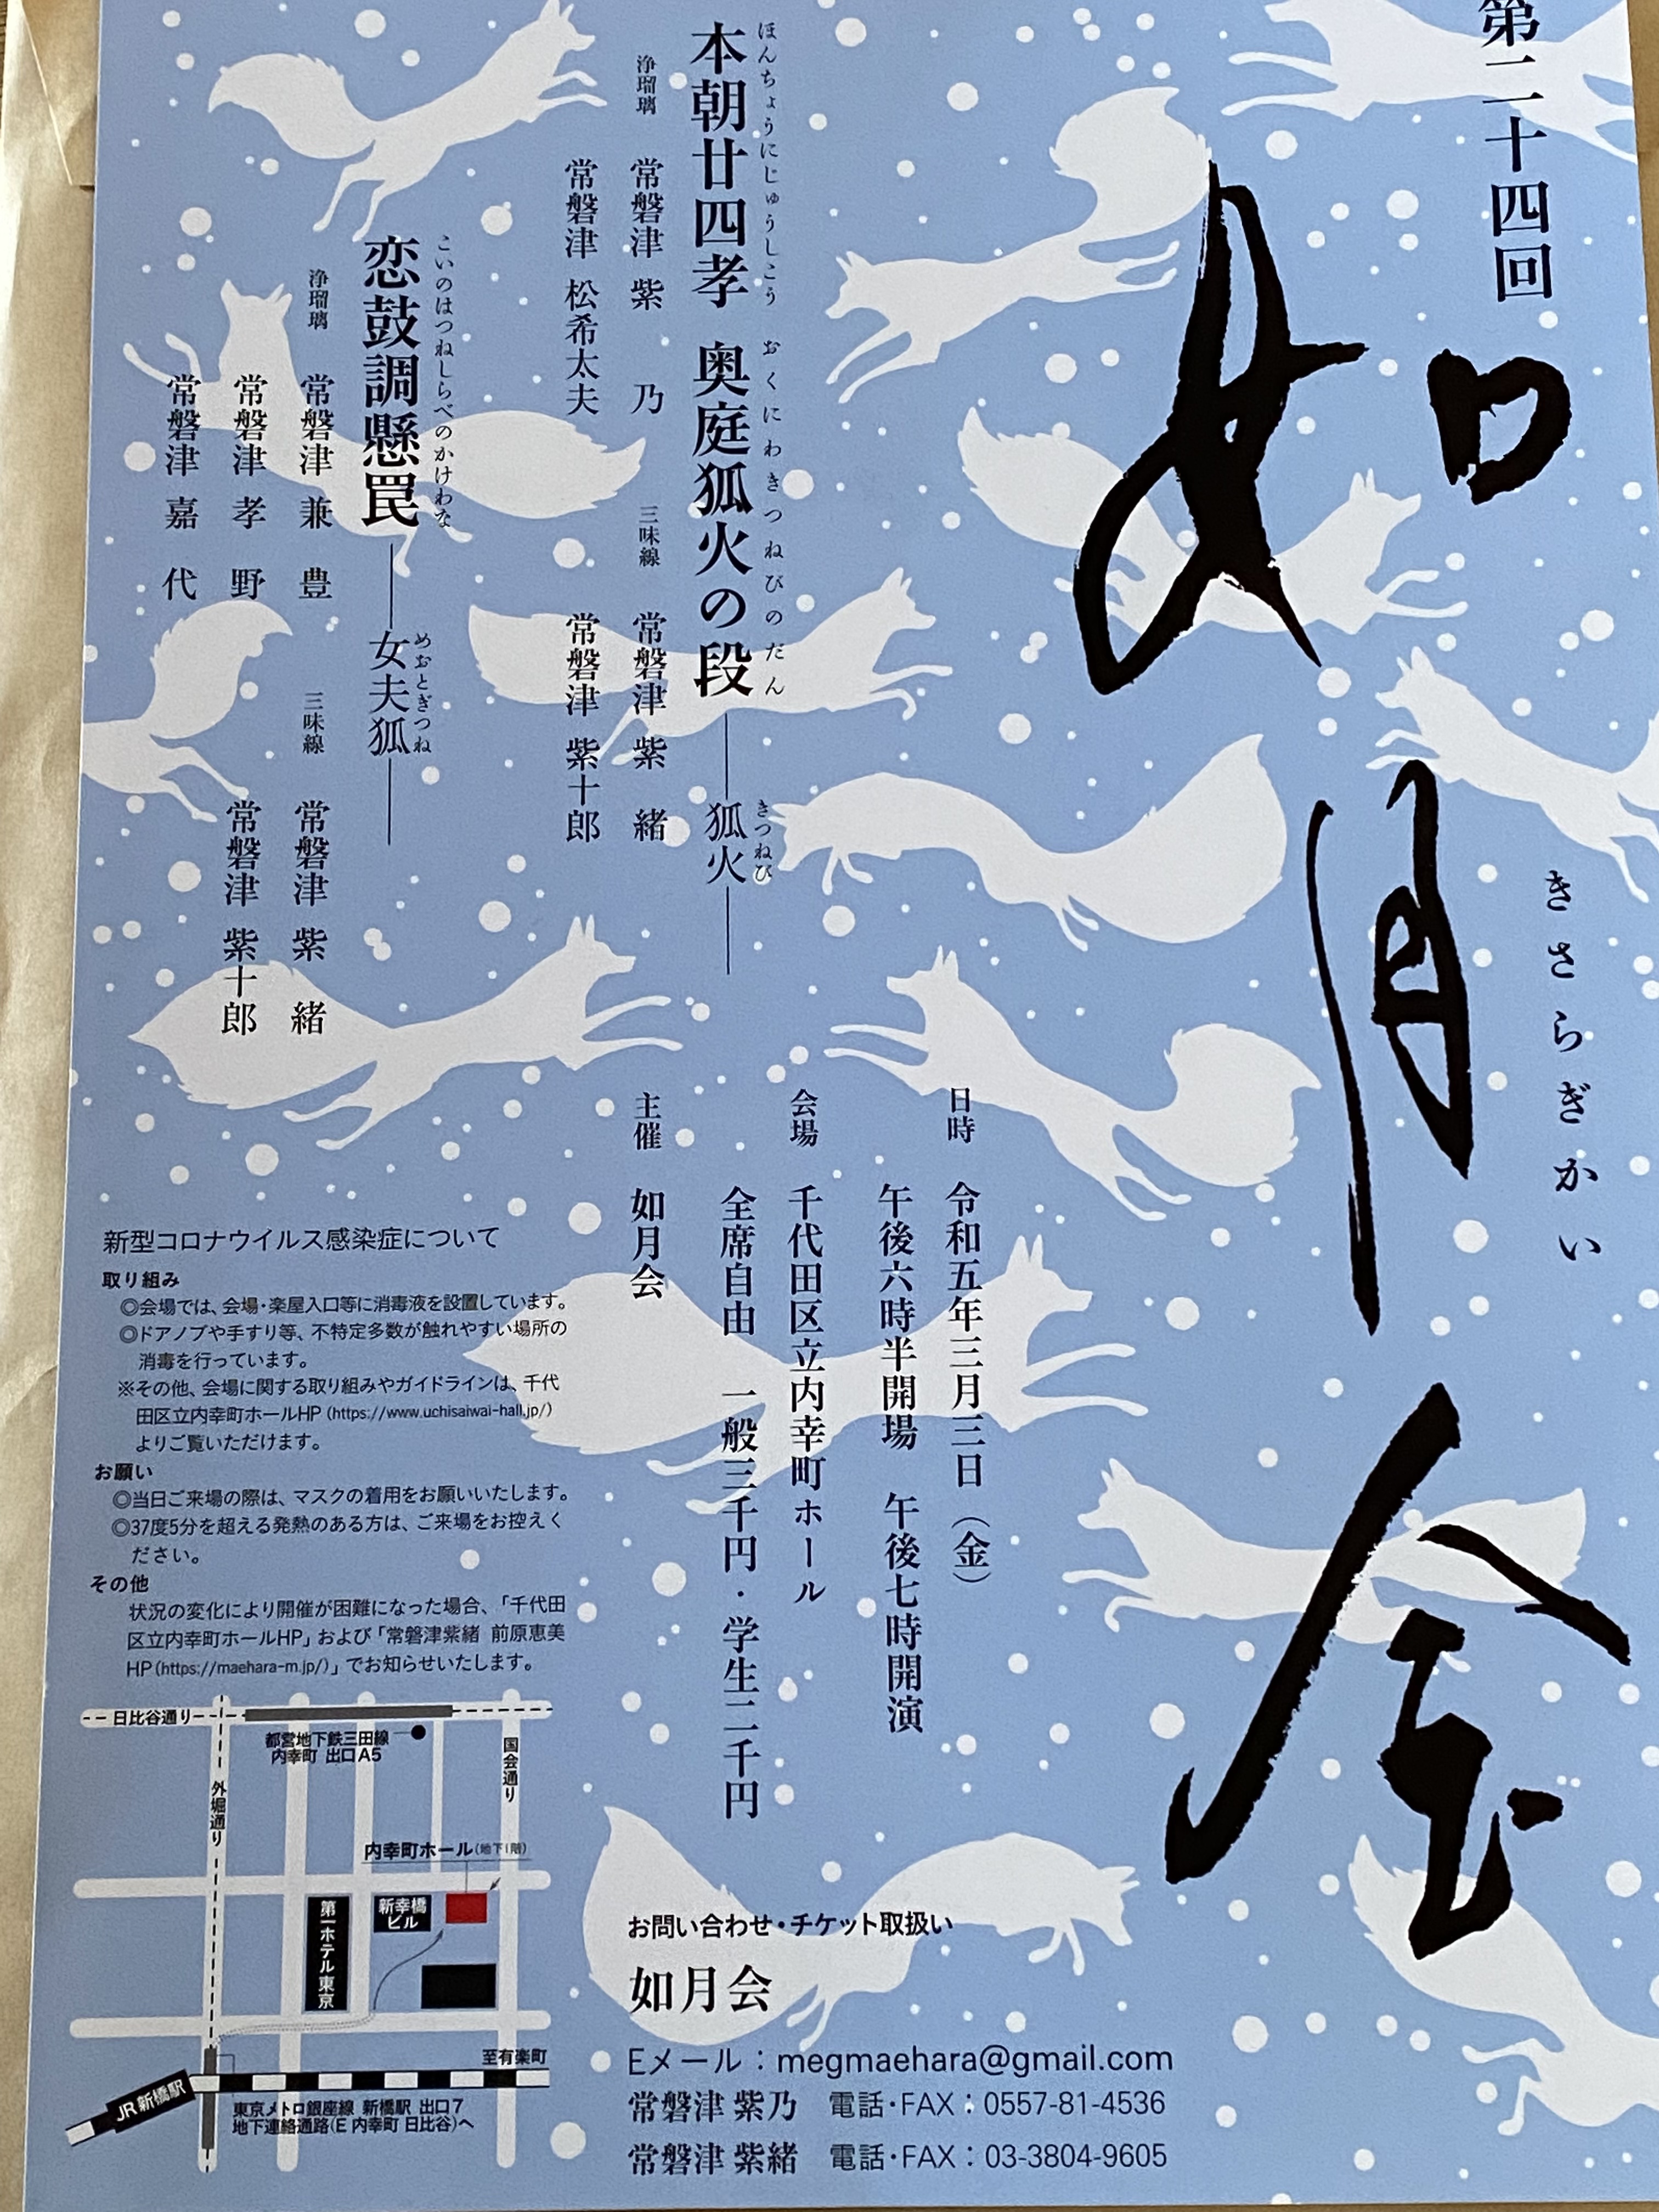 第二十四回
如月会
きさらぎかい
ほんちょうにじゅうしこう おくにわきつねびのだん
本朝廿四孝 奥庭狐火の段
きつねび
狐火
浄瑠璃 常磐津 紫乃
常磐津 松希太夫
三味線 常磐津 紫緒
常磐津 紫十郎
こいのはつねしらべのかけわな
恋鼓調懸罠
めおとぎつね
女夫狐
浄瑠璃 常磐津 兼豊
常磐津 孝野
常磐津 嘉代
三味線 常磐津 紫緒
常磐津 紫十郎
日時 令和五年三月三日（金）
午後六時半開場 午後七時開演
会場 千代田区立内幸町ホール
全席自由 一般三千円・学生二千円
主催 如月会
新型コロナウイルス感染症について
取り組み
◎会場では、会場・楽屋入口等に消毒液を設置しています。
◎ドアノブや手すり等、不特定多数が触れやすい場所の
消毒を行っています。
※その他、会場に関する取り組みやガイドラインは、千代
田区立内幸町ホールHP（https://www.uchisaiwai-hall.jp/）
よりご覧いただけます。
お願い
◎当日ご来場の際は、マスクの着用をお願いいたします。
◎37度5分を超える発熱のある方は、ご来場をお控えく
ださい。
その他
状況の変化により開催が困難になった場合、「千代田
区立内幸町ホールHP」および「常磐津紫緒 前原恵美
HP（https://maehara-m.jp/）」でお知らせいたします。
日比谷通り
都営地下鉄三田線
内幸町 出口A5
国会通り
外堀通り
内幸町ホール（地下1階）
第一ホテル東京
新幸橋
ビル
至有楽町
JR新橋駅
東京メトロ銀座線 新橋駅 出口7
地下連絡通路（E 内幸町 日比谷）へ
お問い合わせ・チケット取扱い
如月会
Eメール：megmaehara@gmail.com
常磐津 紫乃 電話・FAX：0557-81-4536
常磐津 紫緒 電話・FAX：03-3804-9605